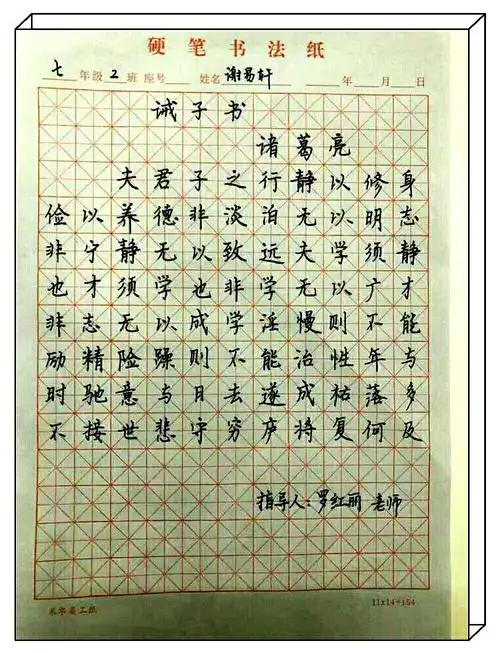 硬笔书法纸
七年级2班 座号 姓名谢易轩 年 月 日
诫子书
诸葛亮
夫君子之行静以修身
俭以养德非淡泊无以明志
非宁静无以致远夫学须静
也才须学也非学无以广才
非志无以成学淫慢则不能
励精险躁则不能治性年与
时驰意与日去遂成枯落多
不接世悲守穷庐将复何及
指导人：罗红丽 老师
11x14=154